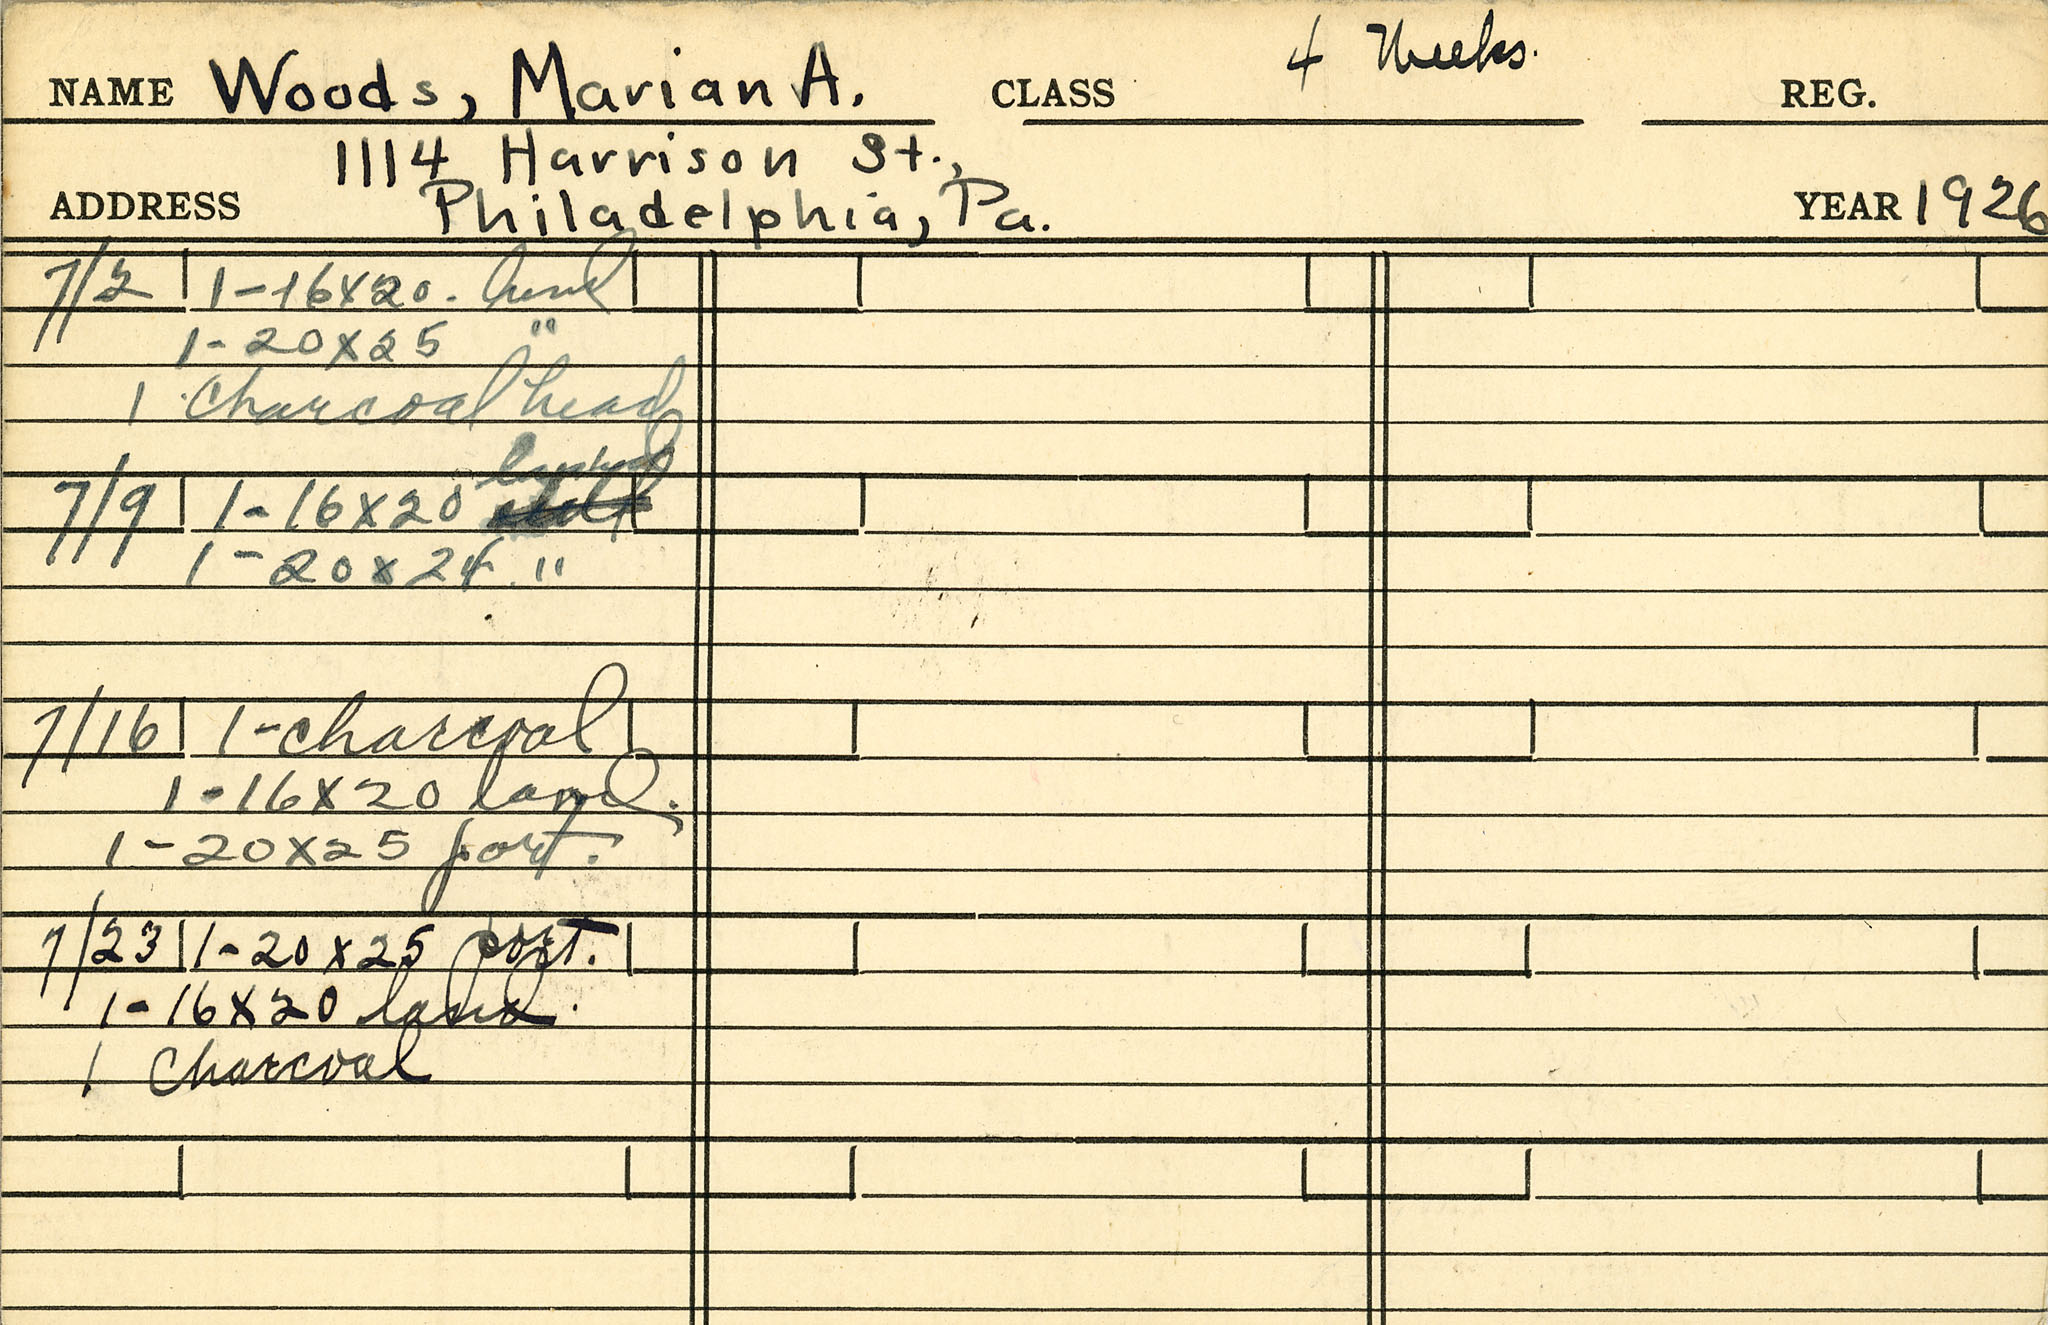 NAME Woods, Marian A. CLASS 4 Weeks. REG.
1114 Harrison St.,
ADDRESS Philadelphia, Pa. YEAR 1926
7/2 1-16x20. land
1-20x25 "
1 Charcoal head
7/9 1-16x20
1-20x24. "
7/16 1-charcoal
1-16x20 land.
1-20x25 port.
7/23 1-20x25 port.
1-16x20 land.
1 Charcoal